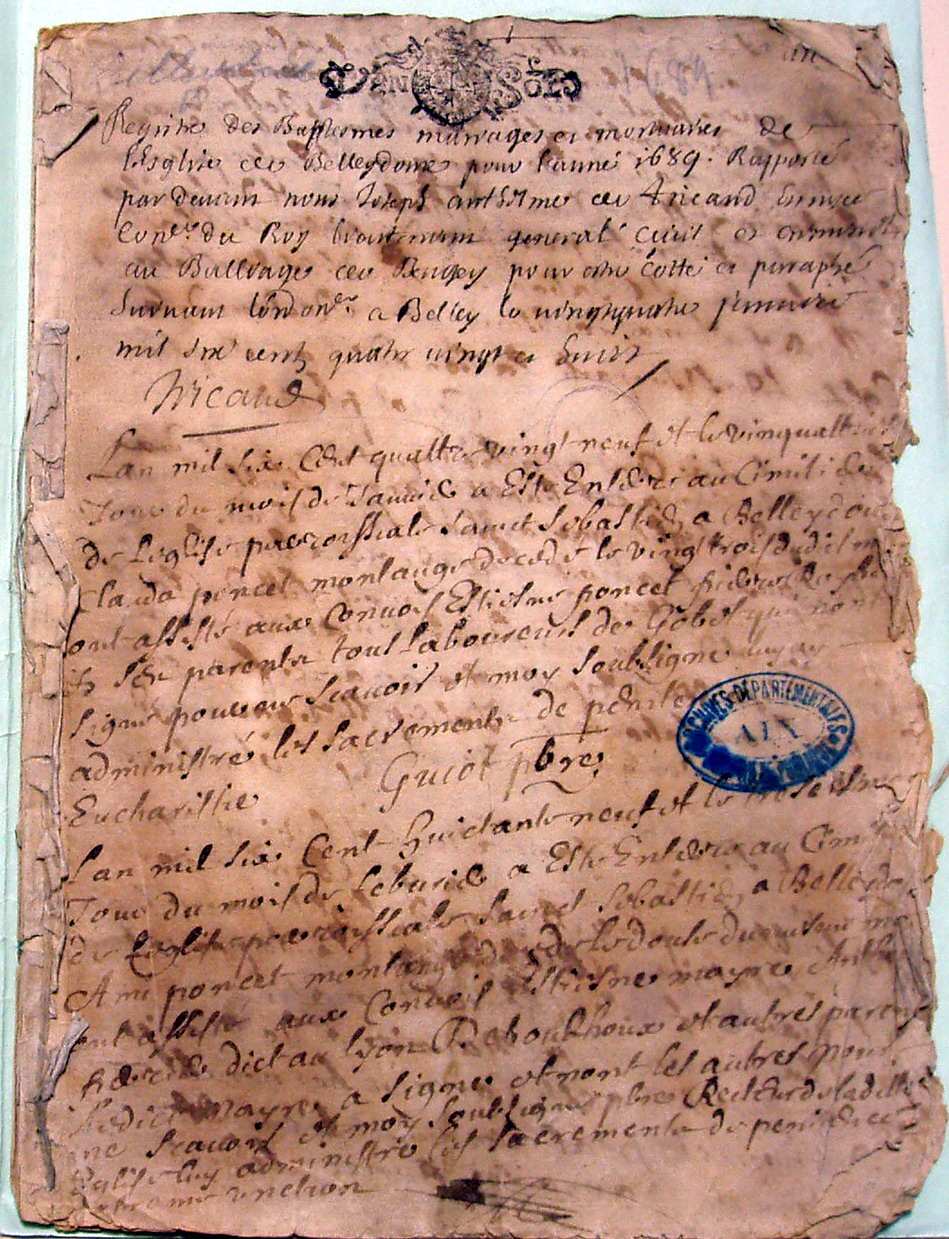 1689
un
VN SOL
Registre des Baptesmes mariages et mortuaires de
l'Esglise de Belleydoux pour l'anné 1689. Rapporté
pardevant nous Joseph Anthelme de Tricaud
Con.er du Roy lieutenant general civil et criminel
au Balliage de Beugey pour estre cotté et paraphé
suivant l'ordon.ce a Belley le vingtquatre janvier
mil six cent quatre vingt et huict
Tricaud
Lan mil six Cent quattre vingt neuf et le vinquattriesme
Jour du mois de Janvier a Esté Enterre au Cimitiere
de Leglise parroissiale Sainct Sebastien a Belleydoux
Clauda poncet montange decede le vingt trois dudit mois
ont assisté aux Convois Estiesne poncet
ses parents tous laboureurs de Gobet qui nont
signe pour ne scavoir et moy soubsigne luy ay
administré les sacrements de penitence
Eucharistie Guiot pbre
ARCHIVES DÉPARTEMENTALES
AIN
Lan mil six Cent huictante neuf et le treiziesme
Jour du mois de feburier a Esté Enterre au Cimitiere
de Leglise parroissiale Sainct Sebastien a Belleydoux
Ami poncet montange decede le douze du
ont assisté aux Convois Estiesne mayre
dict au lyon et autres parents
ledict mayre a signe et nont les autres pour
ne scavoir et moy soubsigne pbre Recteur de ladicte
Eglise luy administré les sacrements de
extreme unction